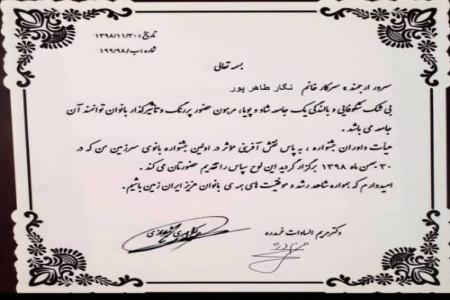 تاریخ: ۱۳۹۸/۱۱/۳۰
شماره: ب/۱۹۹/۹۸
بسمه تعالی
سرور ارجمند، سرکار خانم نگار طاهر پور
بی شک شکوفایی و بالندگی یک جامعه شاد و پویا، مرهون حضور پررنگ و تاثیرگذار بانوان توانمند آن
جامعه می باشد.
هیأت داوران جشنواره، به پاس نقش آفرینی مؤثر در اولین جشنواره بانوی سرزمین من که در
۳۰ بهمن ماه ۱۳۹۸ برگزار گردید این لوح سپاس را تقدیم حضورتان می کند.
امیدوارم که همواره شاهد رشد و موفقیت های همه ی بانوان عزیز ایران زمین باشیم.
دکتر مریم السادات